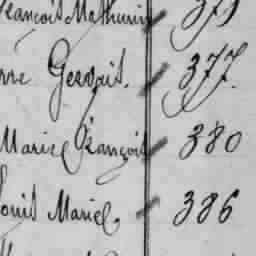 François Mathurin
rre Gervais. 377.
Marie François 380
ouis Marie. 386